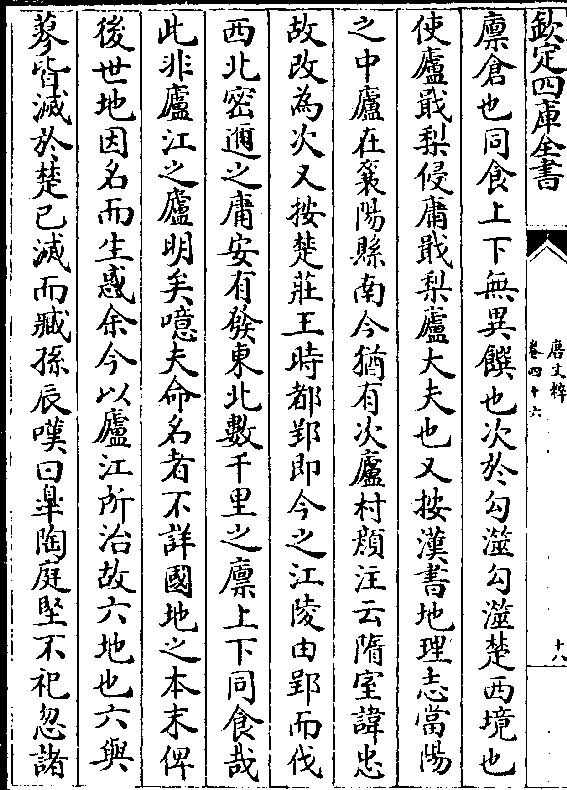 欽定四庫全書
唐文粹
卷四十六
十八
廪倉也同食上下無異饌也次於勾澨勾澨楚西境也
使廬戢梨侵庸戢梨廬大夫也又按漢書地理志當陽
之中廬在襄陽縣南今猶有次廬村頺注云隋室諱忠
故改為次又按楚莊王時都郢即今之江陵由郢而伐
西北密邇之庸安有發東北數千里之廪上下同食哉
此非廬江之廬明矣噫夫命名者不詳國地之本末俾
後世地因名而生惑余今以廬江所治故六地也六與
蓼皆滅於楚已滅而臧孫辰嘆曰臯陶庭堅不祀忽諸